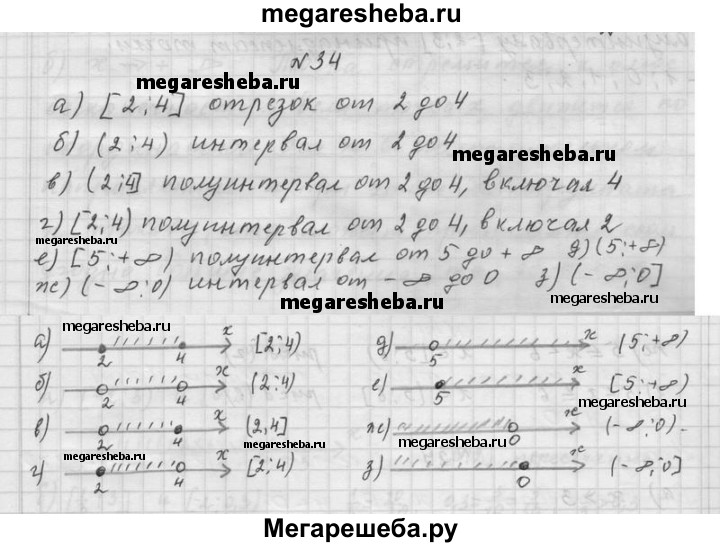 megaresheba.ru
№34
megaresheba.ru
а) [2;4] отрезок от 2 до 4
б) (2;4) интервал от 2 до 4
megaresheba.ru
в) (2;4] полуинтервал от 2 до 4, включая 4
г) [2;4) полуинтервал от 2 до 4, включая 2
megaresheba.ru
е) [5;+∞) полуинтервал от 5 до +∞ д) (5;+∞)
megaresheba.ru
ж) (-∞;0) интервал от -∞ до 0 з) (-∞;0]
megaresheba.ru
megaresheba.ru
а) 2 4 x [2;4)
д) 5 x (5;+∞)
megaresheba.ru
б) 2 4 x (2;4)
е) 5 x [5;+∞)
megaresheba.ru
в) 2 4 x (2,4]
ж) 0 x (-∞;0)
megaresheba.ru
megaresheba.ru
г) 2 4 x [2;4)
з) 0 x (-∞;0]
megaresheba.ru
megaresheba.ru
Мегарешеба.ру